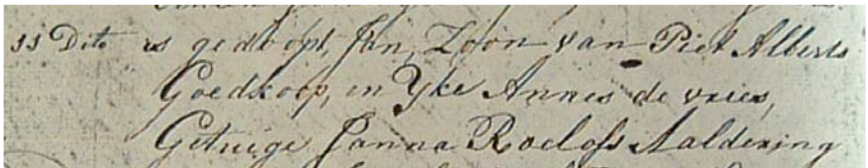 Dito is gedoopt, Jan, Zoon van Piet Alberts
Goedkoop, en Yke Annes de vries,
Getuige Janna Roelofs Aaldering